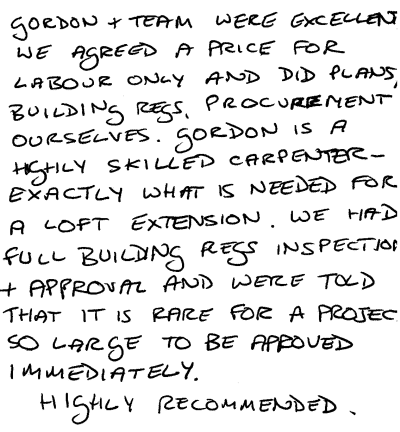 GORDON + TEAM WERE EXCELLENT
WE AGREED A PRICE FOR
LABOUR ONLY AND DID PLANS,
BUILDING REGS, PROCUREMENT
OURSELVES. GORDON IS A
HIGHLY SKILLED CARPENTER -
EXACTLY WHAT IS NEEDED FOR
A LOFT EXTENSION. WE HAD
FULL BUILDING REGS INSPECTION
+ APPROVAL AND WERE TOLD
THAT IT IS RARE FOR A PROJEC
SO LARGE TO BE APPOVED
IMMEDIATELY.
HIGHLY RECOMMENDED.